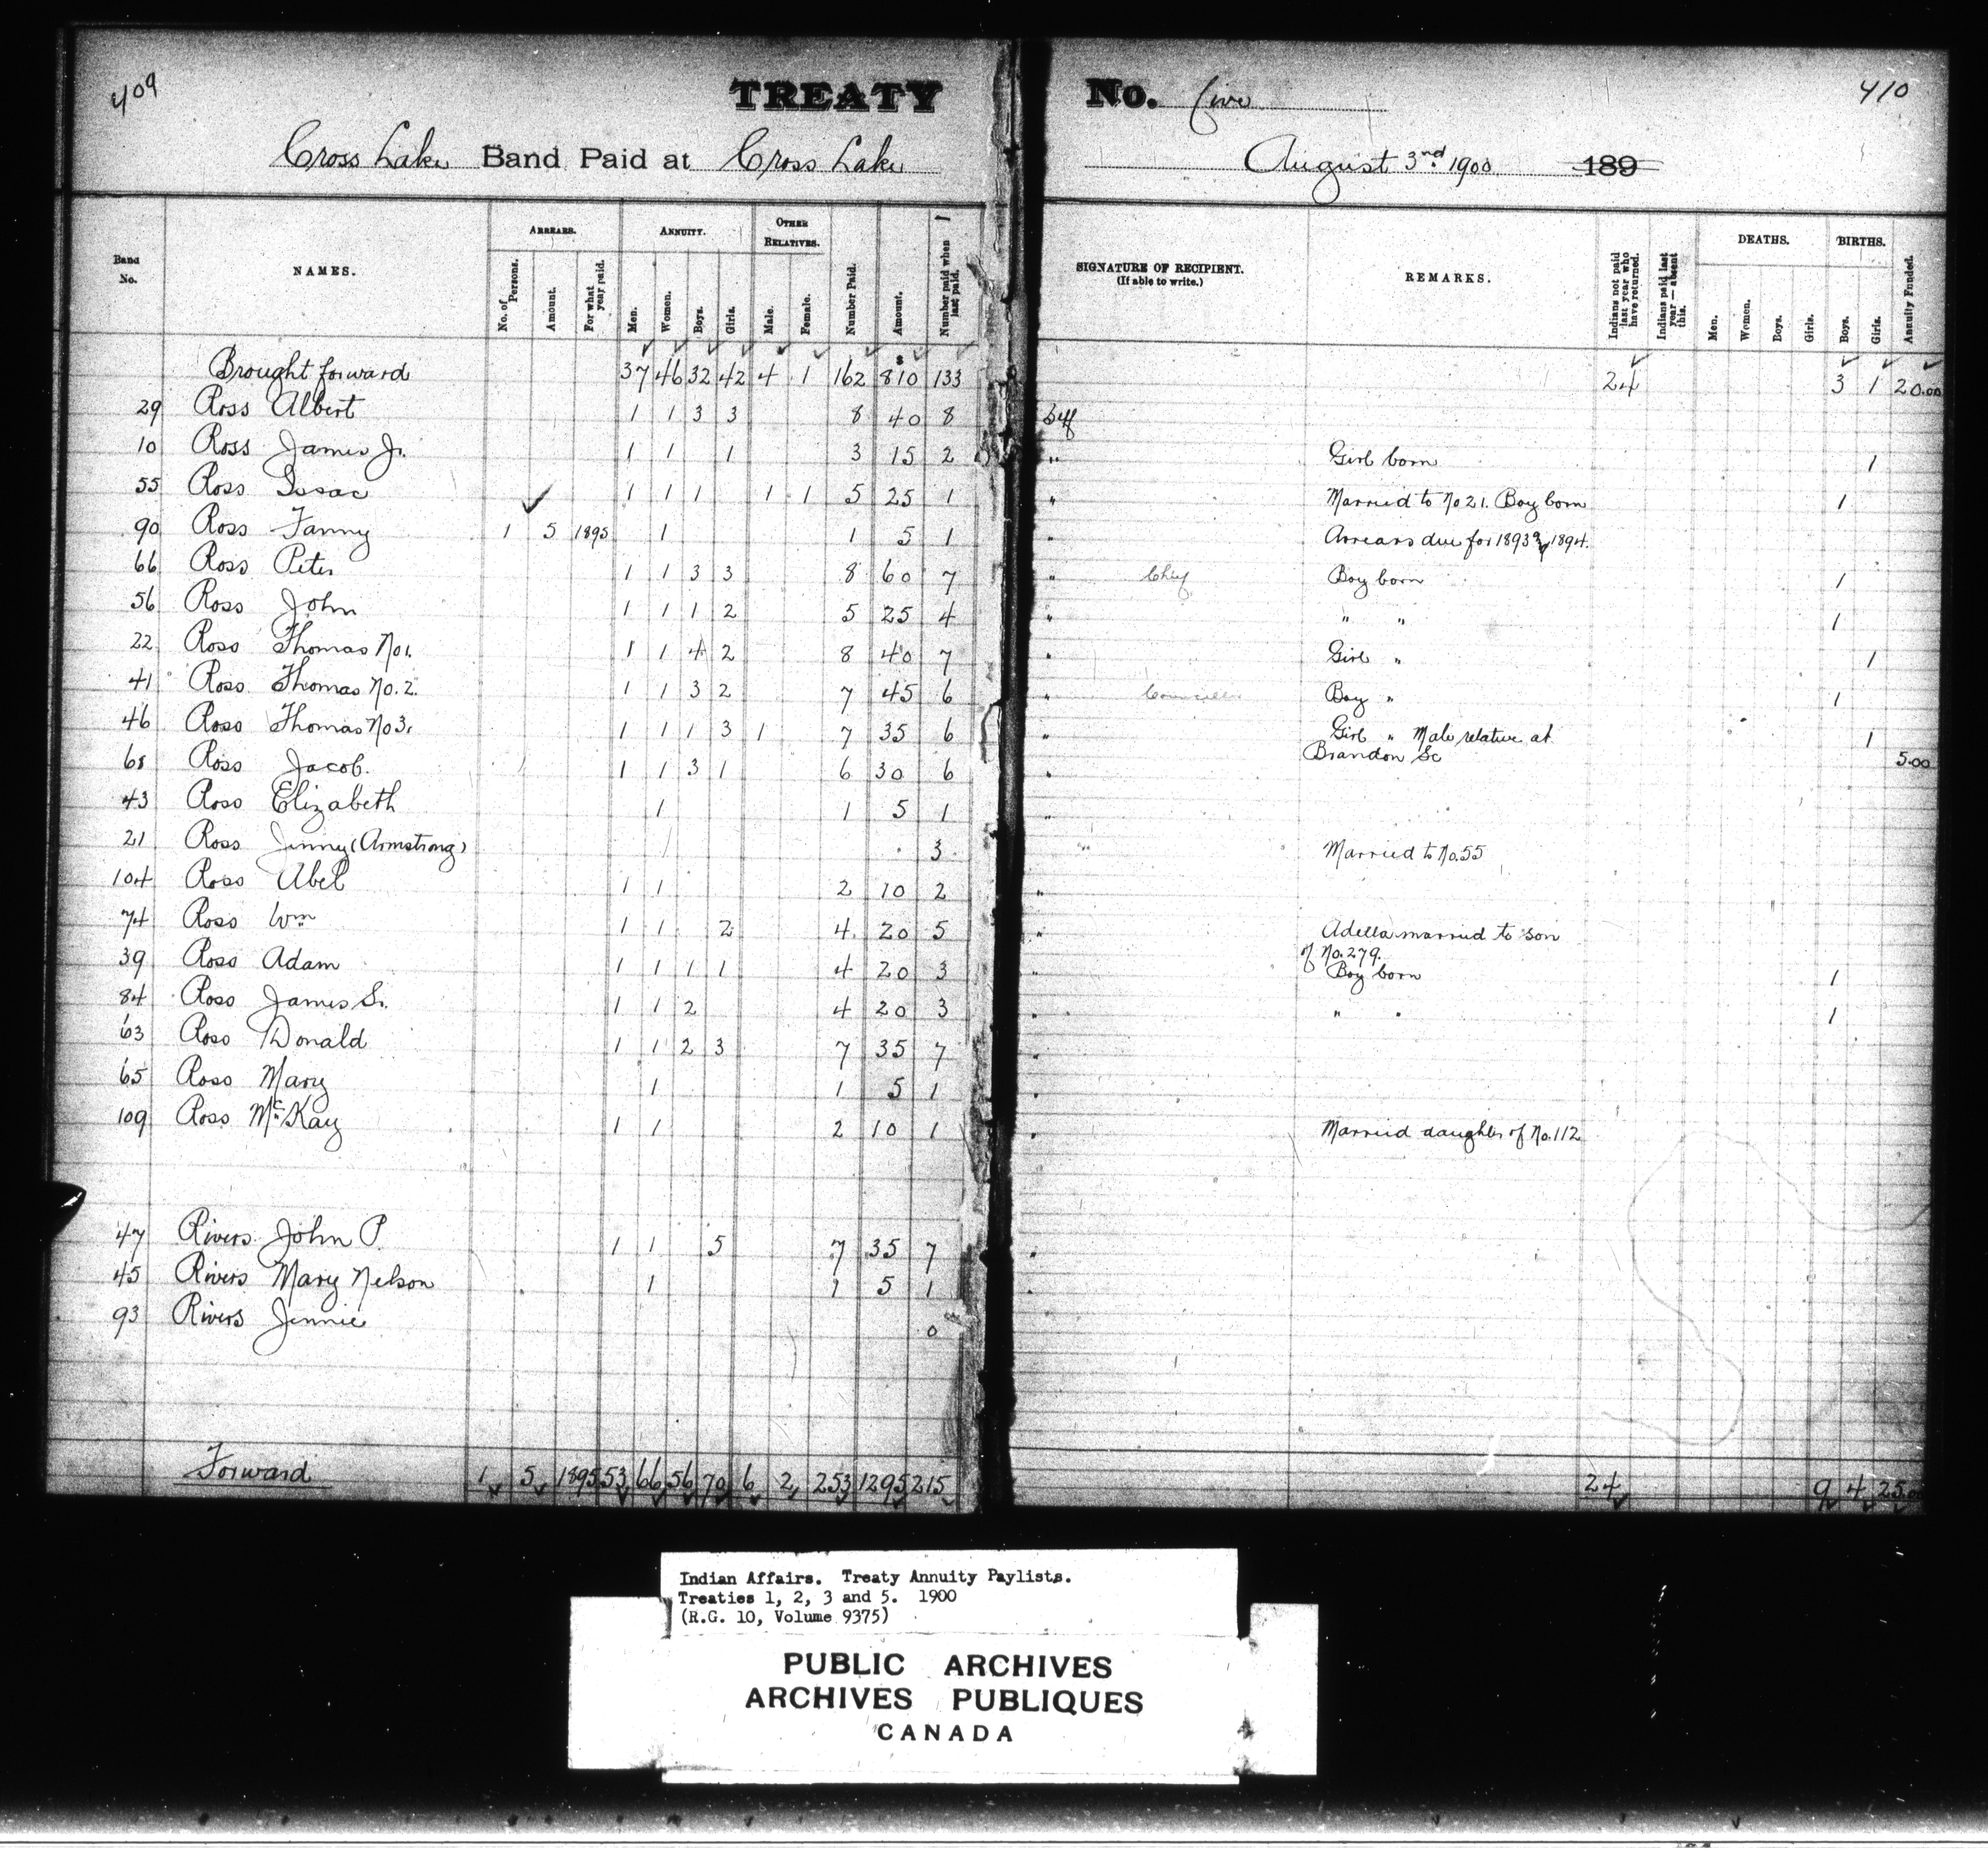 409
TREATY No. five
410
Cross Lake Band Paid at Cross Lake August 3nd 1900 189
Band No. NAMES. ARREARS. No. of Persons. Amount. For what year paid. ANNUITY. Men. Women. Boys. Girls. OTHER RELATIVES. Male. Female. Number Paid. Amount. Number paid when last paid. SIGNATURE OF RECIPIENT. (If able to write.) REMARKS. Indians not paid last year who have returned. Indians paid last year—absent this. DEATHS. Men. Women. Boys. Girls. BIRTHS. Boys. Girls. Annuity Funded.
Brought forward 37 46 32 42 4 1 162 $810 133 24 3 1 20.00
29 Ross Albert 1 1 3 3 8 40 8
10 Ross James Jr. 1 1 1 3 15 2 " Girl born 1
55 Ross Issac 1 1 1 1 1 5 25 1 " Married to No 21. Boy born 1
90 Ross Fanny 1 5 1895 1 1 5 1 " Arrears due for 1893 & 1894.
66 Ross Peter 1 1 3 3 8 60 7 " Chief Boy born 1
56 Ross John 1 1 1 2 5 25 4 " " " 1
22 Ross Thomas No 1. 1 1 4 2 8 40 7 " Girl " 1
41 Ross Thomas No. 2. 1 1 3 2 7 45 6 " Councillor Boy " 1
46 Ross Thomas No 3. 1 1 1 3 1 7 35 6 " Girl " Male relative at 1
Brandon Sc 5.00
68 Ross Jacob. 1 1 3 1 6 30 6 "
43 Ross Elizabeth 1 1 5 1 "
21 Ross Jinny (Armstrong) 3 " Married to No. 55
104 Ross Abel 1 1 2 10 2 "
74 Ross Wm 1 1 2 4 20 5 " Adella married to son
of No. 279.
39 Ross Adam 1 1 1 1 4 20 3 " Boy born 1
84 Ross James Sr. 1 1 2 4 20 3 " " " 1
63 Ross Donald 1 1 2 3 7 35 7 "
65 Ross Mary 1 1 5 1 "
109 Ross McKay 1 1 2 10 1 " Married daughter of No. 112
47 Rivers John P. 1 1 5 7 35 7 "
45 Rivers Mary Nelson 1 1 5 1
93 Rivers Jennie 0
Forward 1 5 1895 53 66 56 70 6 2 253 1295 215 24 9 4 25.00
Indian Affairs. Treaty Annuity Paylists.
Treaties 1, 2, 3 and 5. 1900
(R.G. 10, Volume 9375)
PUBLIC ARCHIVES
ARCHIVES PUBLIQUES
CANADA